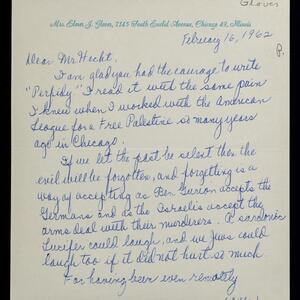 Glover
P.
Mrs. Elmer J. Glover, 7745 South Euclid Avenue, Chicago 49, Illinois
February 16, 1962
Dear Mr Hecht.
I am glad you had the courage to write
"Perfidy" I read it with the same pain
I knew when I worked with the American
League for a Free Palestine so many years
ago in Chicago.
If we let the past be silent then the
evil will be forgotten, and forgetting is a
way of accepting as Ben Gurion accepts the
Germans and as the Israelis accept the
arms deal with their murderers. A sardonic
Lucifer could laugh, and we Jews could
laugh too if it did not hurt so much
For having been even remotely